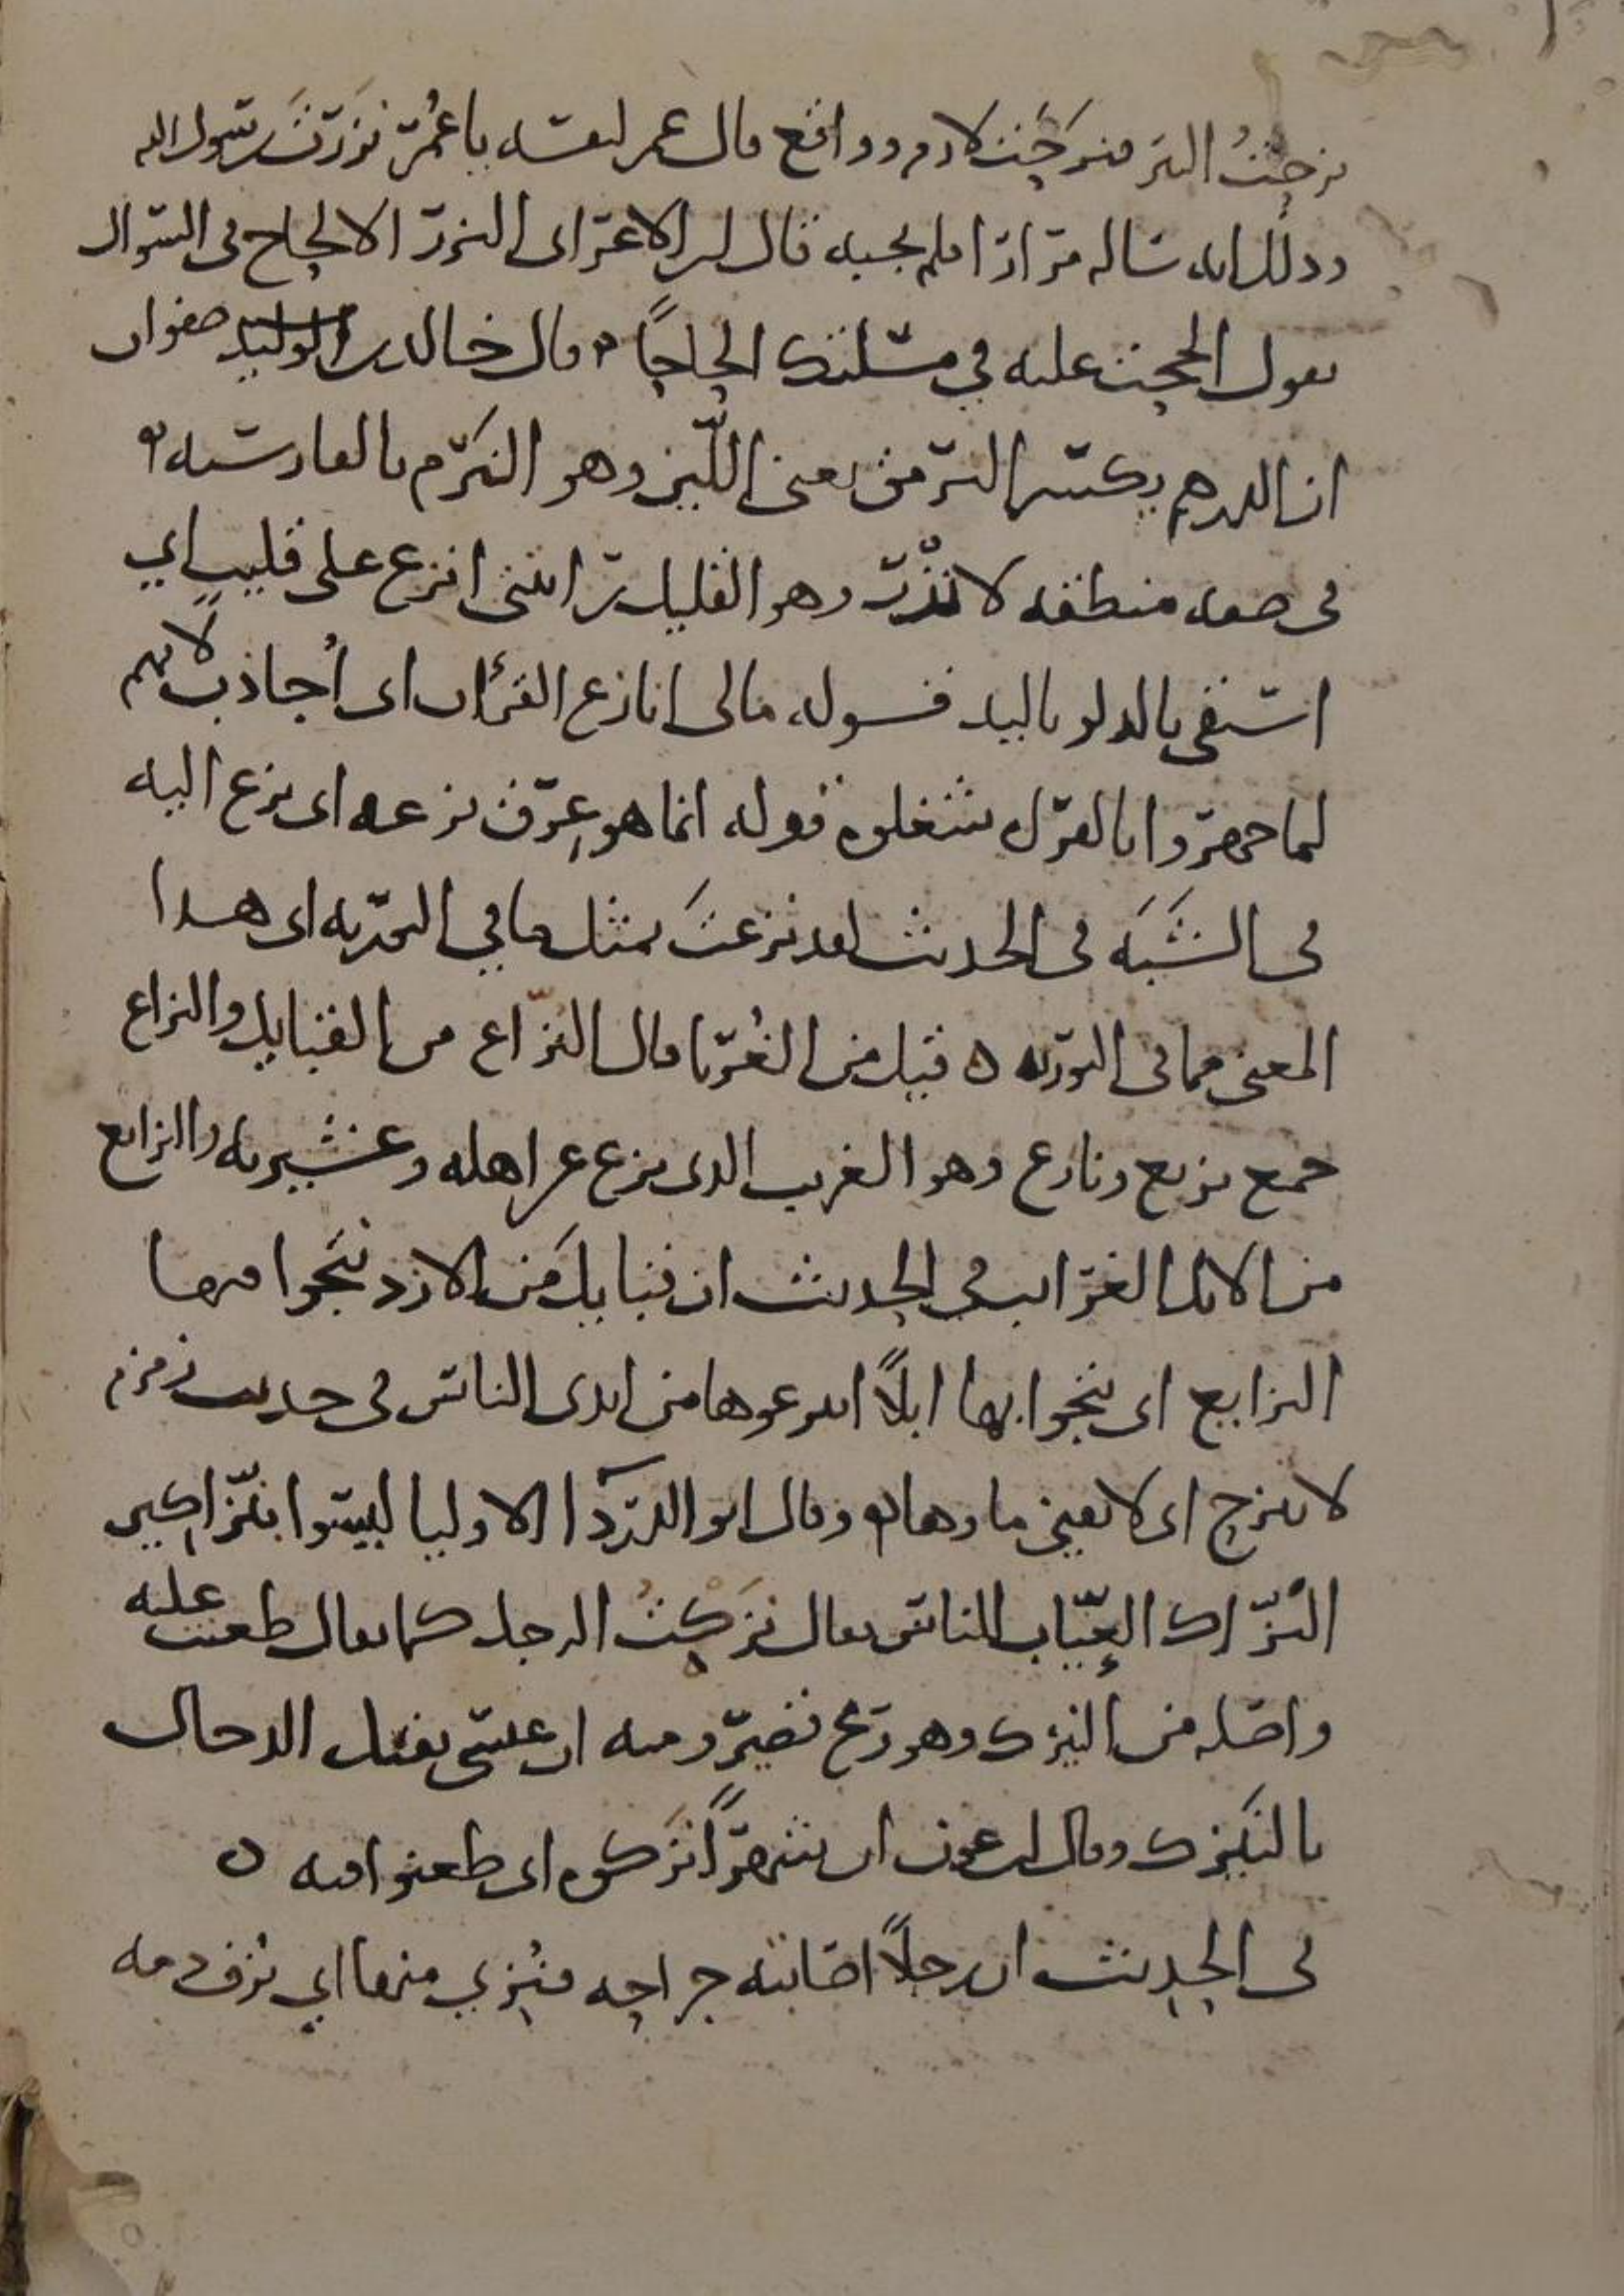 نزحتُ البئر فنزحت لازم وواقع قال عمر لنفسه يا عُمَر نزَرتَ رسول الله
وذلك انه ساله مرارًا فلم يجبه قال ابن الاعرابى النزر الالحاح فى السوال
يقول الححت عليه في مسلتك الحاحًا وقال خالد بن الوليد صفوان
ان الدرهم يكسر النرمق يعنى اللين وهو النرم بالفارسيه
فى صفه منطقه لا نَزْر وهو القليل رايتنى انزع على قليب اي
استقى بالدلو باليد قوله مالى انازع القرءان اى أُجاذب لانهم
لما جهروا بالقراه شغلوه قوله انما هو عِرق نزعه اى نزع اليه
فى الشَبَه فى الحديث لقد نزعتَ بمثل ما في التوريه اى هذا
المعنى مما فى التوريه ه قيل من الغُربا قال النُزّاع من القبايل والنزاع
جمع نزيع ونازع وهو الغريب الذى نزع عن اهله وعشيرته والنزايع
من الابل الغرايب في الحديث ان قبايل من الازد نتجوا فيها
النزايع اى نتجوا بها ابلًا انتزعوها من ايدى الناس فى حديث زمزم
لا تنزح اى لا يفنى ماوها وقال ابو الدردا الاوليا ليسوا بنزّاكين
النُزّاك العيّاب للناس يقال نزكتُ الرجل كما يقال طعنت عليه
واصله من النيزك وهو رمح قصير ومنه ان عيسى يقتل الدجال
بالنَيزك وقال ابن عون ان شهرًا نزكوه اى طعنوا فيه ه
فى الحديث ان رجلًا اصابته جراحه فنُزي منها اي نُزف دمه